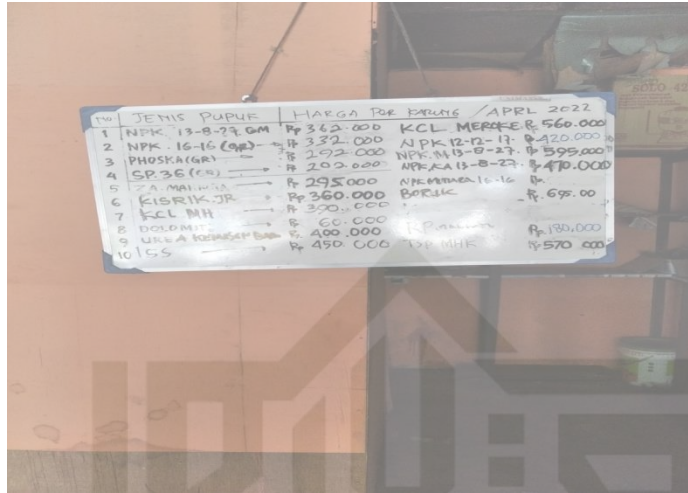 NO JENIS PUPUK HARGA PER KARUNG / APRL 2022
1 NPK. 13-8-27. GM Rp 362.000 KCL. MEROKE. Rp 560.000
2 NPK. 16-16 (GR) Rp 332.000 NPK 12-12-17. Rp 420.000
3 PHOSKA (GR) Rp 292.000 NPK. M 13-8-27. Rp 595.000
4 SP. 36 (GR) Rp 202.000 NPK. KA 13-8-27. Rp 470.000
5 ZA. Rp 295.000 NPK 16-16 Rp
6 KISRIK. JR Rp 360.000 Rp. 695.00
7 KCL MH Rp 390.000
8 DOLOMIT Rp 60.000 RP. Rp. 180.000
9 UREA Rp 400.000
10 ISS Rp 450.000 TSP MHK Rp 570.000
SOTO